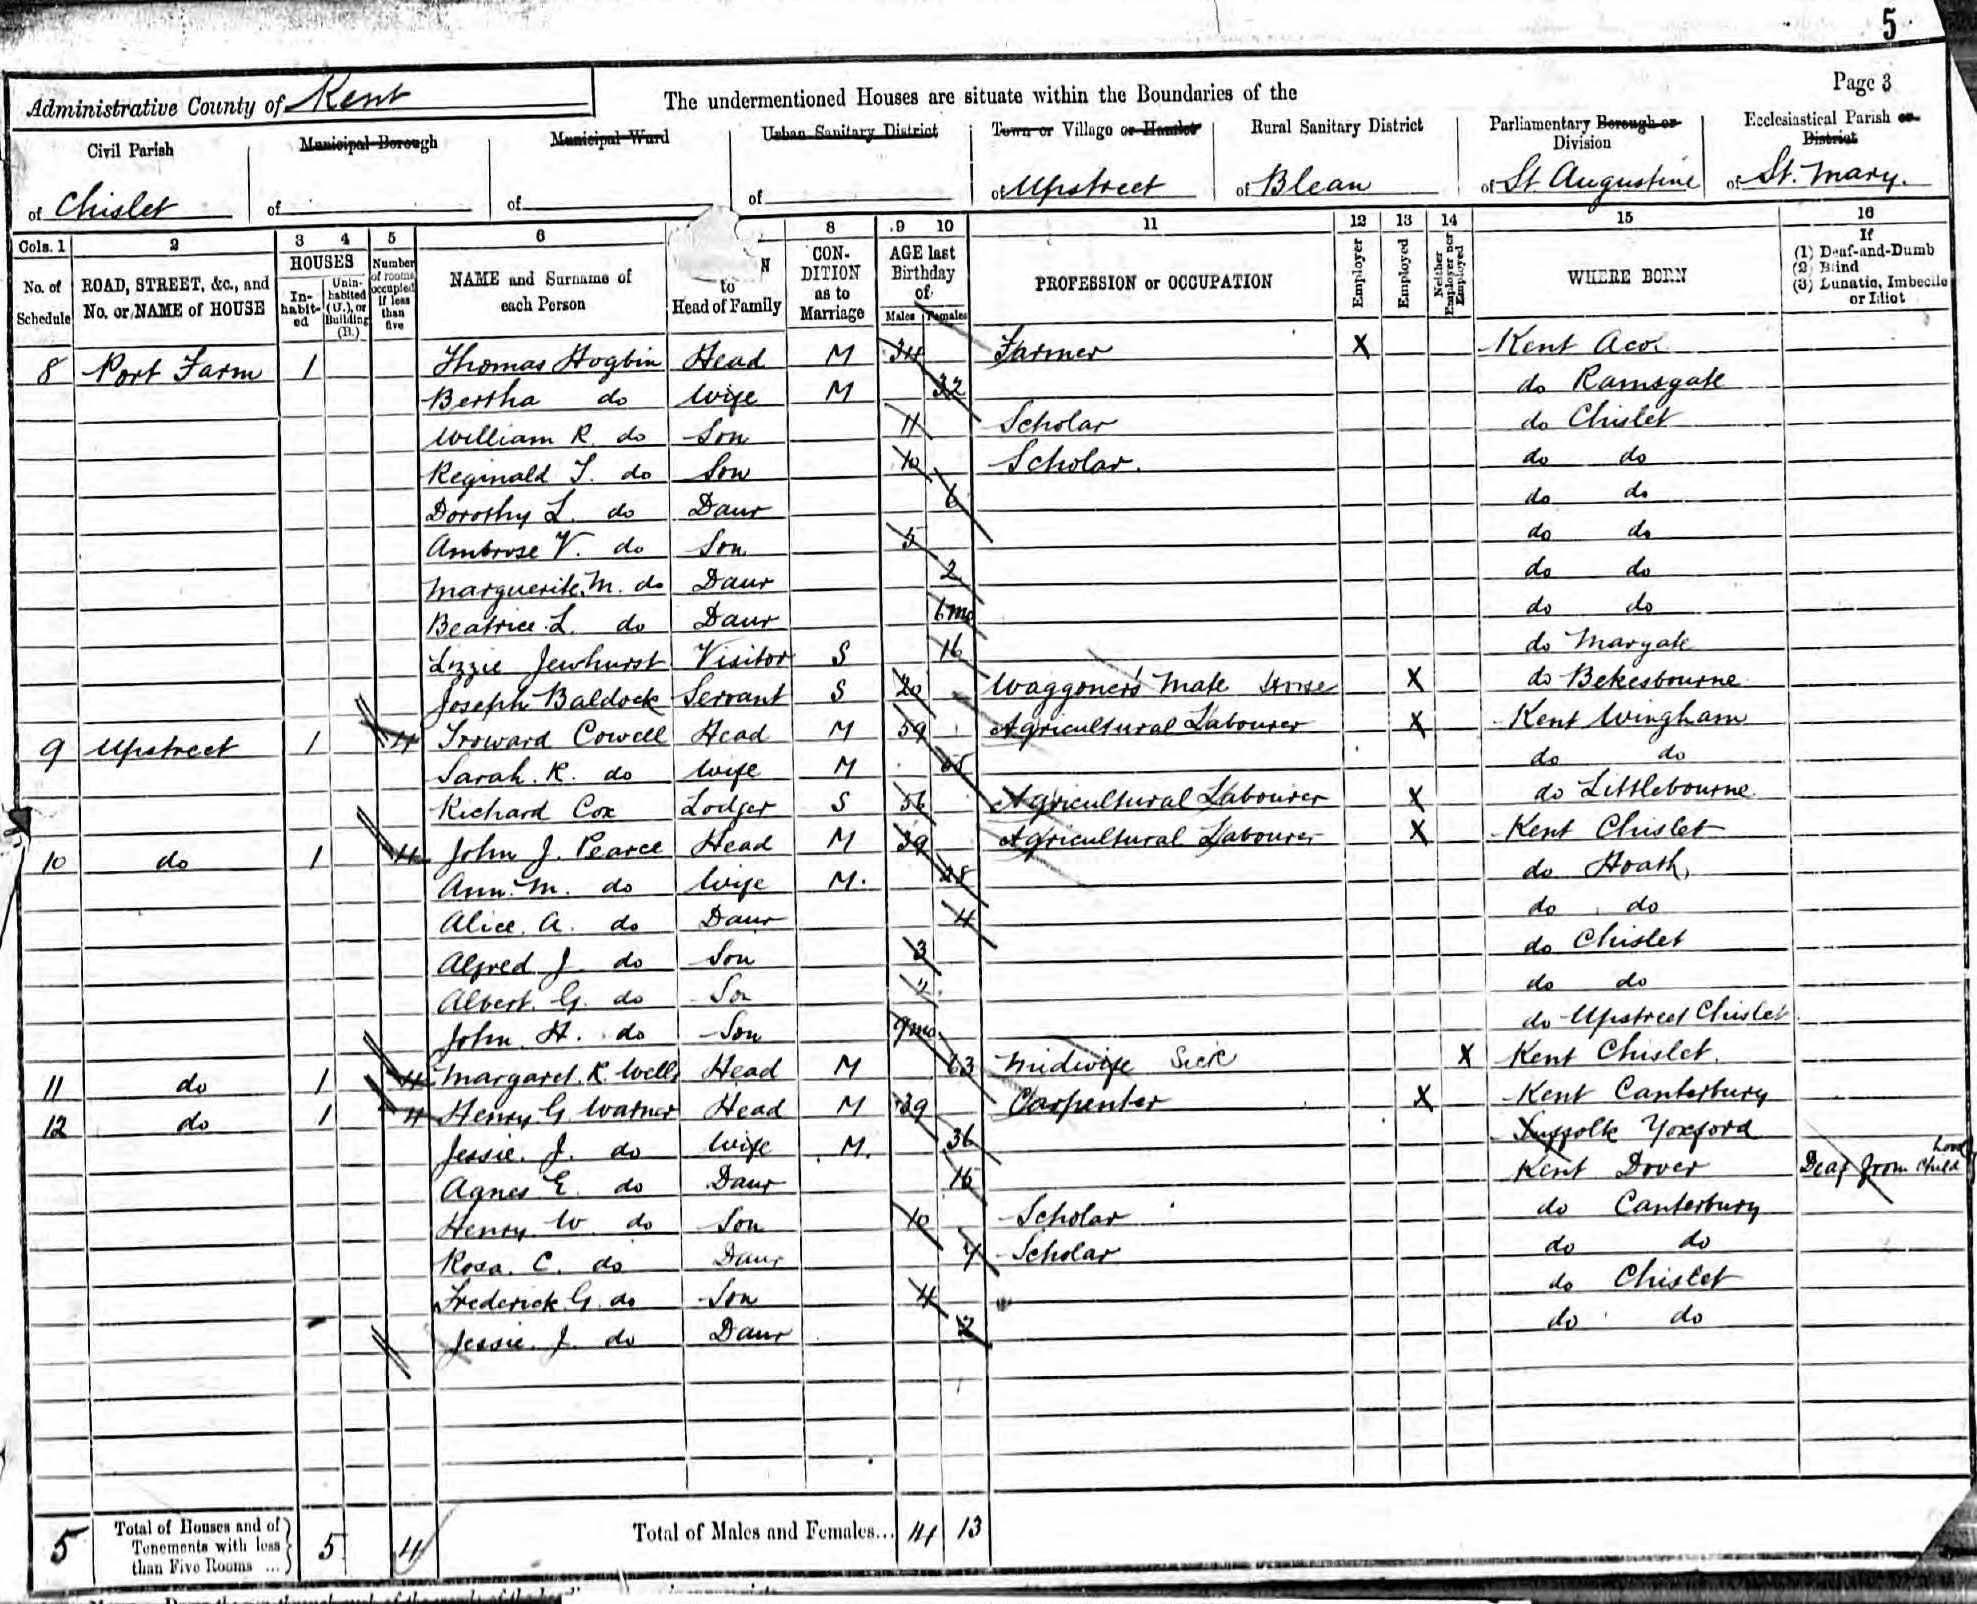 5
Page 3
Administrative County of Kent
The undermentioned Houses are situate within the Boundaries of the
Civil Parish of Chislet
Municipal Borough of
Municipal Ward of
Urban Sanitary District of
Town or Village or Hamlet of Upstreet
Rural Sanitary District of Blean
Parliamentary Borough or Division of St Augustine
Ecclesiastical Parish or District of St. Mary.
Cols. 1 2 3 4 5 6 8 9 10 11 12 13 14 15 16
No. of Schedule
ROAD, STREET, &c., and No. or NAME of HOUSE
HOUSES
Inhabited
Uninhabited (U.), or Building (B.)
Number of rooms occupied if less than five
NAME and Surname of each Person
N to Head of Family
CONDITION as to Marriage
AGE last Birthday of
Males Females
PROFESSION or OCCUPATION
Employer
Employed
Neither Employer nor Employed
WHERE BORN
If (1) Deaf-and-Dumb (2) Blind (3) Lunatic, Imbecile or Idiot
8 Port Farm 1 Thomas Hogbin Head M 34 Farmer X Kent Acol
Bertha do Wife M 32 do Ramsgate
William R. do Son 11 Scholar do Chislet
Reginald T. do Son 10 Scholar. do do
Dorothy L. do Daur 6 do do
Ambrose V. do Son 5 do do
Marguerite. M. do Daur 2 do do
Beatrice. L. do Daur 6mo do do
Lizzie Jewhurst Visitor S 16 do Margate
Joseph Baldock Servant S 20 Waggoner's Mate Horse X do Bekesbourne
9 Upstreet 1 4 Troward Cowell Head M 59 Agricultural Labourer X Kent Wingham
Sarah. R. do Wife M do do
Richard Cox Lodger S 56 Agricultural Labourer X do Littlebourne
10 do 1 4 John J. Pearce Head M 39 Agricultural Labourer X Kent Chislet
Ann. M. do Wife M. 28 do Hoath,
Alice. A. do Daur 4 do do
Alfred J do Son 3 do Chislet
Albert. G. do Son 2 do do
John. H. do Son 9mo do Upstreet Chislet
11 do 1 4 Margaret. R. Wells Head M 63 Midwife Sick X Kent Chislet.
12 do 1 4 Henry G Warner Head M 39 Carpenter X Kent Canterbury
Jessie. J. do Wife M. 36 Suffolk Yoxford
Agnes E. do Daur 16 Kent Dover Deaf from Childhood
Henry W do Son 10 Scholar do Canterbury
Rosa. C. do Daur 7 Scholar do do
Frederick G. do Son 4 do Chislet
Jessie. J. do Daur 2 do do
5 Total of Houses and of Tenements with less than Five Rooms ... 5 4 Total of Males and Females... 14 13